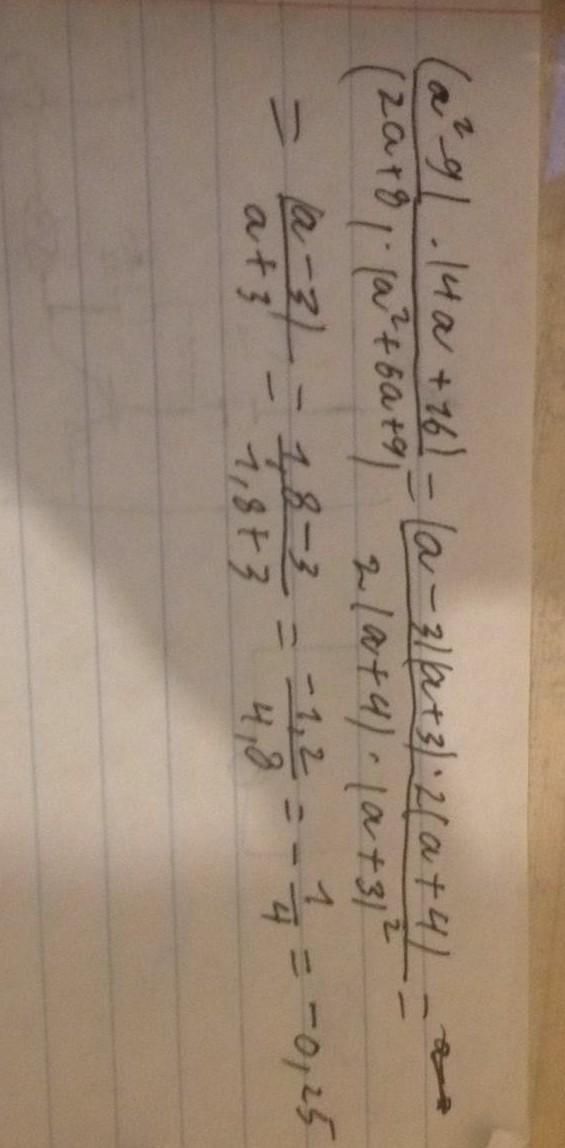 (a²-9) · (4a+16) / (2a+8) · (a²+6a+9) = (a-3)(a+3) · 2(a+4) / 2(a+4) · (a+3)² =
= (a-3) / a+3 = 1,8-3 / 1,8+3 = -1,2 / 4,8 = - 1/4 = -0,25